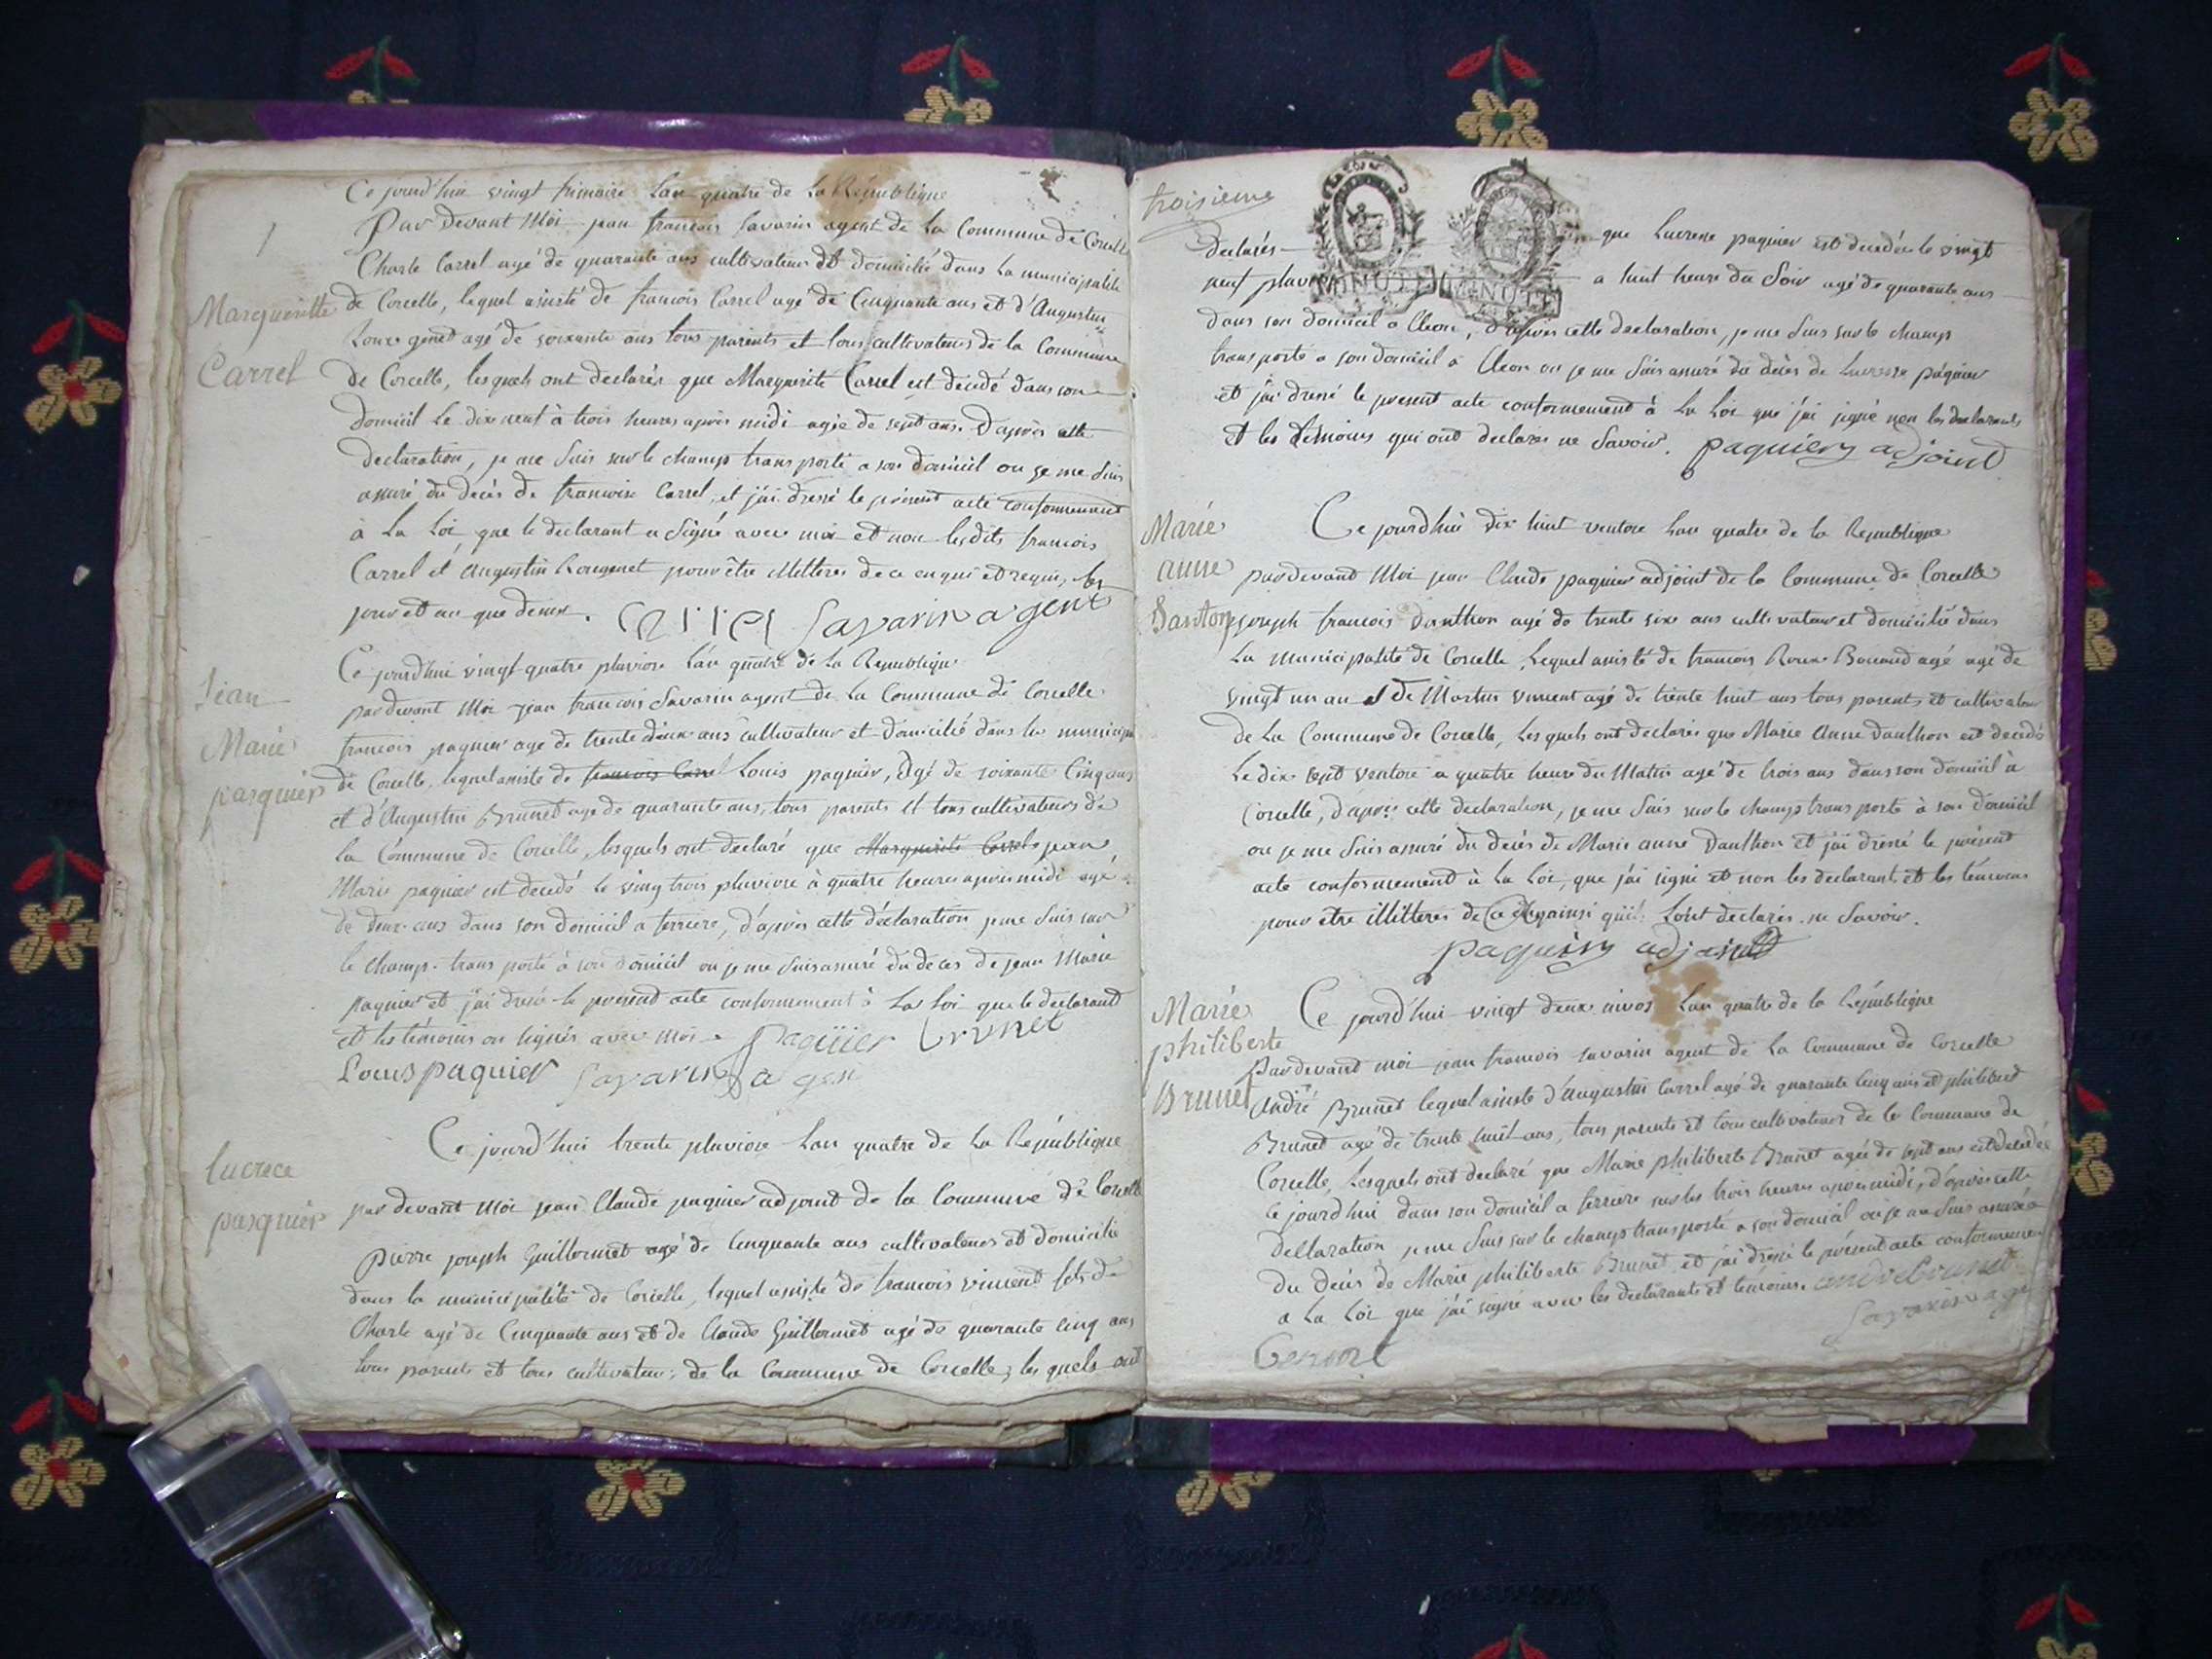 Ce jourd'hui vingt frimaire lan quatre de la République
1
Par devant Moi jean francois Savarin agent de la Commune de Corcelle
Charle Carrel agé de quarante ans cultivateur et domicilié dans la municipalité
Margueritte
de Corcelle, lequel assisté de francois Carrel agé de Cinquante ans et d'Augustin
Roux genet agé de soixante ans tous parents et tous cultivateurs de la Commune
Carrel
de Corcelle, lesquels ont declarés que Marguerite Carrel est décedé dans son
domicil le dix neuf à trois heures après midi agée de sept ans. D'après cette
declaration, je me suis sur le champs transporté a son domicil ou je me suis
assuré du décès de francoise Carrel, et j'ai dressé le présent acte conformement
à la loi, que le declarant a signé avec moi et non lesdits francois
Carrel et Augustin Rougenet pour être illitterés de ce enquis et requis, les
jour et an que dessus. Carrel Savarin agent
Ce jourd'hui vingt quatre pluviose l'an quatre de la République
Jean
par devant Moi jean francois Savarin agent de la Commune de Corcelle
Marie
francois paquier agé de trente deux ans cultivateur et domicilié dans la municipa
pasquier
de Corcelle, lequel assiste de francois Carrel Louis paquier, agé de soixante Cinq ans
et d'Augustin Brunet agé de quarante ans, tous parents et tous cultivateurs de
la Commune de Corcelle, lesquels ont declaré que Marguerite Carrel jean
Marie paquier est decedé le vingt trois pluviose à quatre heures apres midi agé
de deux ans dans son domicil a ferriere, d'après cette déclaration je me suis sur
le champs transporté à son domicil ou je me suis assuré du deces de jean Marie
paquier et j'ai dressé le présent acte conformement à la loi que le declarant
et les témoins on signés avec moi. Paquier Brunet
Louis paquier Savarin agen
Ce jourd'hui trente pluviose lan quatre de la République
lucrece
pasquier
par devant Moi jean Claude paquier adjoint de la Commune de Corcelle
pierre joseph Guillermet agé de Cinquante ans cultivateurs et domicilié
dans la municipalité de Corcelle, lequel assisté de francois vincent fils de
Charle agé de Cinquante ans et de Claude Guillermet agé de quarante cinq ans
tous parents et tous cultivateurs de la Commune de Corcelle, lesquels ont
troisieme
declarés que Lucresse paquier est decedée le vingt
neuf pluviose a huit heure du soir agé de quarante ans
MINUTE MINUTE
dans son domicil a Cleon, d'après cette declaration, je me suis sur le champs
transporté a son domicil à Cleon ou je me suis assuré du décès de Lucresse paquier
et j'ai dressé le present acte conformement à la Loi que j'ai signé non les declarants
et les témoins qui ont declarés ne savoir. paquier adjoint
Marie
Ce jourd'hui dix huit ventose lan quatre de la République
anne
par devant Moi jean Claude paquier adjoint de la Commune de Corcelle
Danton
joseph francois Danthon agé de trente six ans cultivateur et domicilié dans
la municipalité de Corcelle, lequel assisté de francois Roux Bouaud agé agé de
vingt un an et de Martin vincent agé de trente huit ans tous parents et cultivateur
de la Commune de Corcelle, lesquels ont declarés que Marie Anne Danthon est decedé
le dix sept ventose a quatre heure du Matin agé de trois ans dans son domicil à
Corcelle, d'après cette declaration, je me suis sur le champs transporté à son domicil
ou je me suis assuré du décès de Marie anne Danthon et j'ai dressé le présent
acte conformement à la Loi, que j'ai signé et non les declarants et les témoins
pour être illitterés de ce enquis ainsi qu'il l'ont declarés ne savoir.
paquier adjoint
Marie
Ce jourd'hui vingt deux nivos lan quatre de la République
philiberte
Par devant moi jean francois savarin agent de la Commune de Corcelle
Brunet
André Brunet lequel assiste d'augustin Carrel agé de quarante cinq ans et philibert
Brunet agé de trente huit ans, tous parents et tous cultivateurs de la Commune de
Corcelle, lesquels ont declaré que Marie philiberte Brunet agée de sept ans est decedée
ce jourd'hui dans son domicil a ferriere sur les trois heures apres midi, d'après cette
declaration je me suis sur le champs transporté a son domicil ou je me suis assuré
du décès de Marie philiberte Brunet, et j'ai dressé le présent acte conformement
a la Loi que j'ai signé avec les declarants et temoins. andré brunet
Savarin age